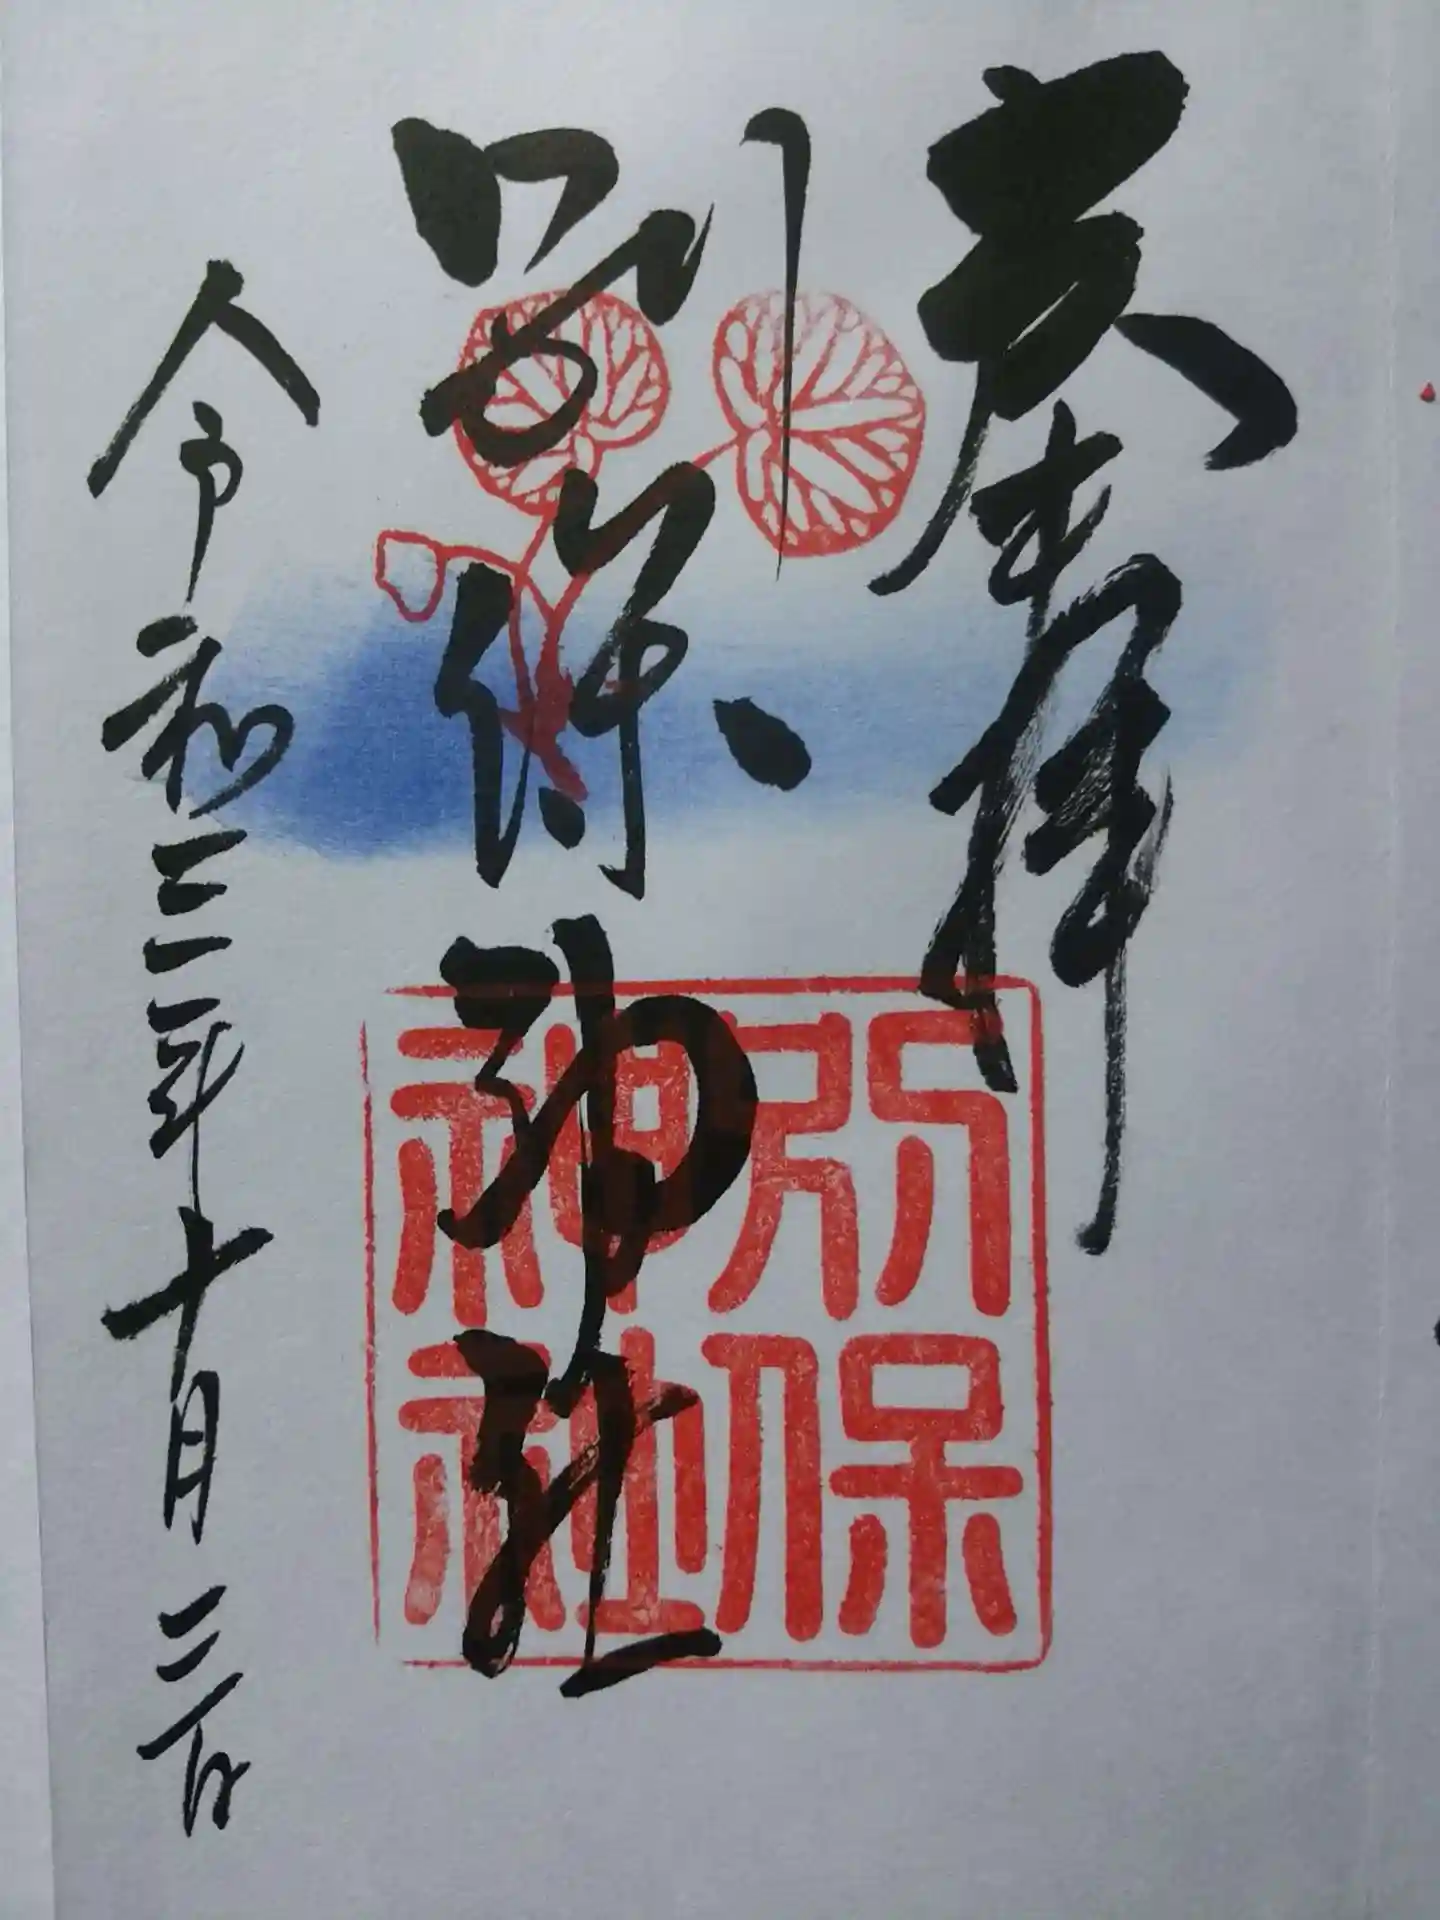 奉拝
別保神社
令和三年十月三日
別保
神社